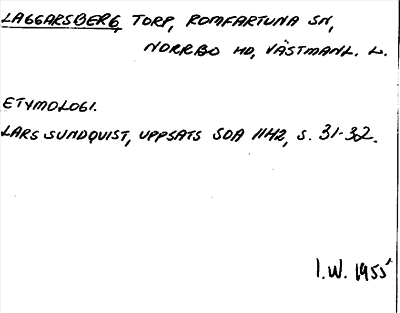 LAGGARSBERG, TORP, ROMFARTUNA SN,
NORRBO HD, VÄSTMANL. L.
ETYMOLOGI.
LARS SUNDQVIST, UPPSATS SOA 1142, S. 31-32.
I.W. 1955